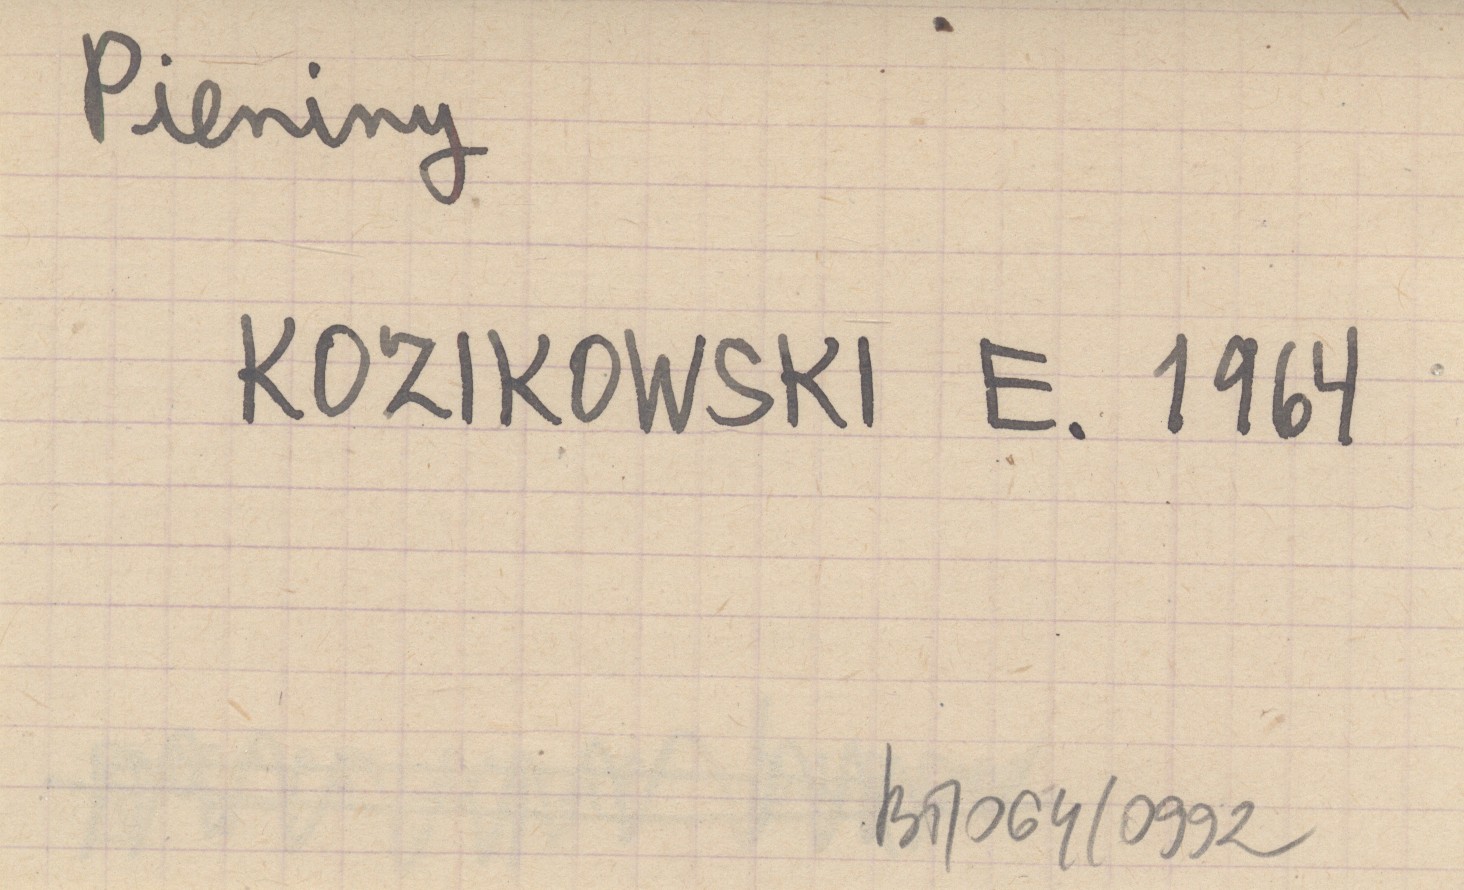 Pieniny
KOZIKOWSKI E. 1964
064/0992